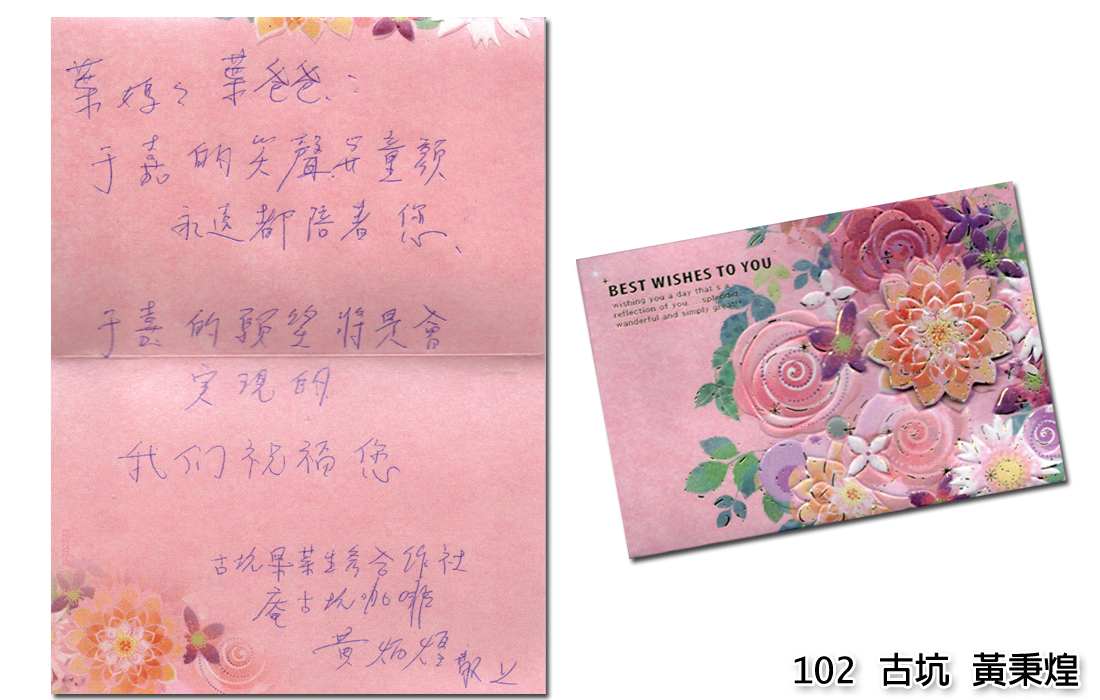 葉媽々 葉爸爸:
于嘉的笑聲与童顏
永遠都陪著您、
于嘉的願望將是會
实現的
我们祝福您
古坑果菜生產合作社
庵古坑咖啡
黃炳煌敬上
BEST WISHES TO YOU
wishing you a day that's a
reflection of you... splendid
wonderful and simply great!
102 古坑 黃秉煌